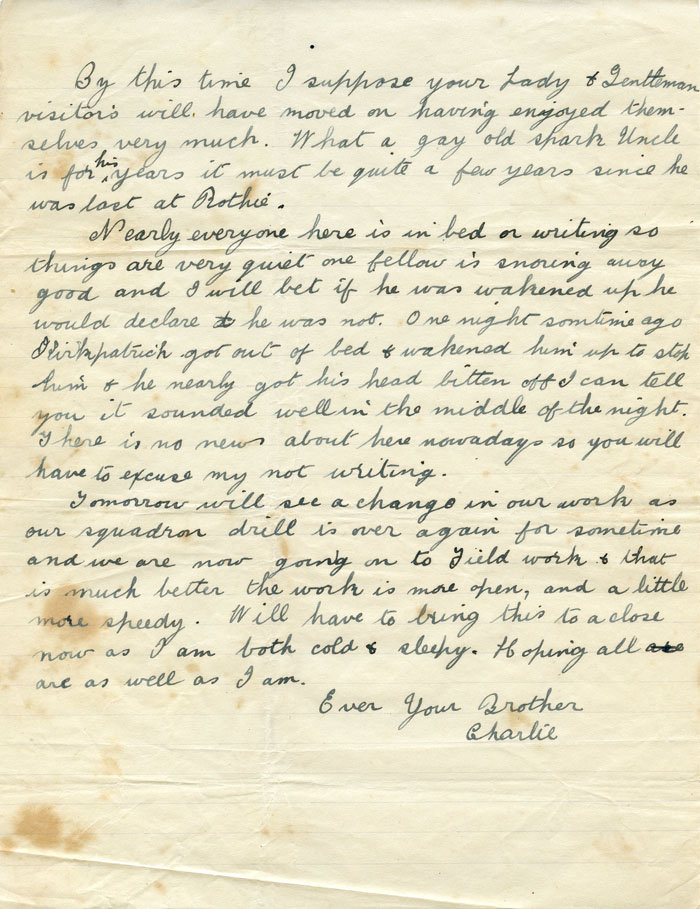 By this time I suppose your Lady & Gentleman
visitors will have moved on having enjoyed them-
selves very much. What a gay old spark Uncle
is for his years it must be quite a few years since he
was last at Rothie.
Nearly everyone here is in bed or writing so
things are very quiet one fellow is snoring away
good and I will bet if he was wakened up he
would declare he was not. One night somtime ago
Kirkpatrick got out of bed & wakened him up to stop
him & he nearly got his head bitten off I can tell
you it sounded well in the middle of the night.
There is no news about here nowadays so you will
have to excuse my not writing.
Tomorrow will see a change in our work as
our squadron drill is over again for sometime
and we are now going on to Field work & that
is much better the work is more open, and a little
more speedy. Will have to bring this to a close
now as I am both cold & sleepy. Hoping all are
are as well as I am.
Ever Your Brother
Charlie